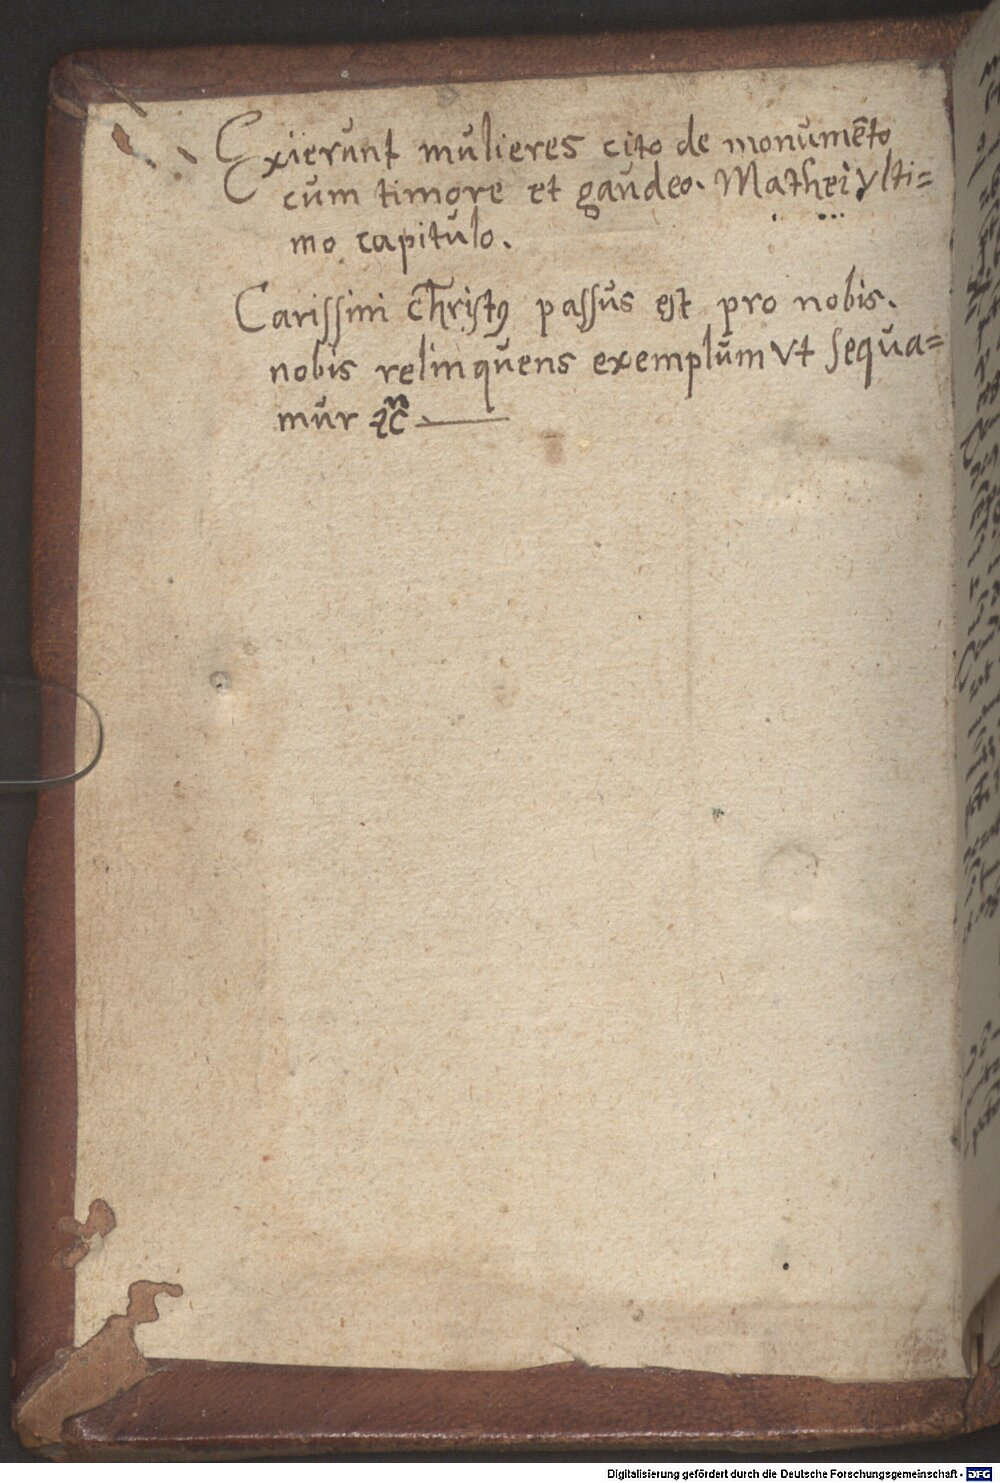 Exierunt mulieres cito de monumēto
cum timore et gaudeo. Mathei vlti=
mo capitulo.
Carissimi christꝰ passus est pro nobis.
nobis relinquens exemplum vt sequa=
mur ⁊c̃
Digitalisierung gefördert durch die Deutsche Forschungsgemeinschaft - DFG